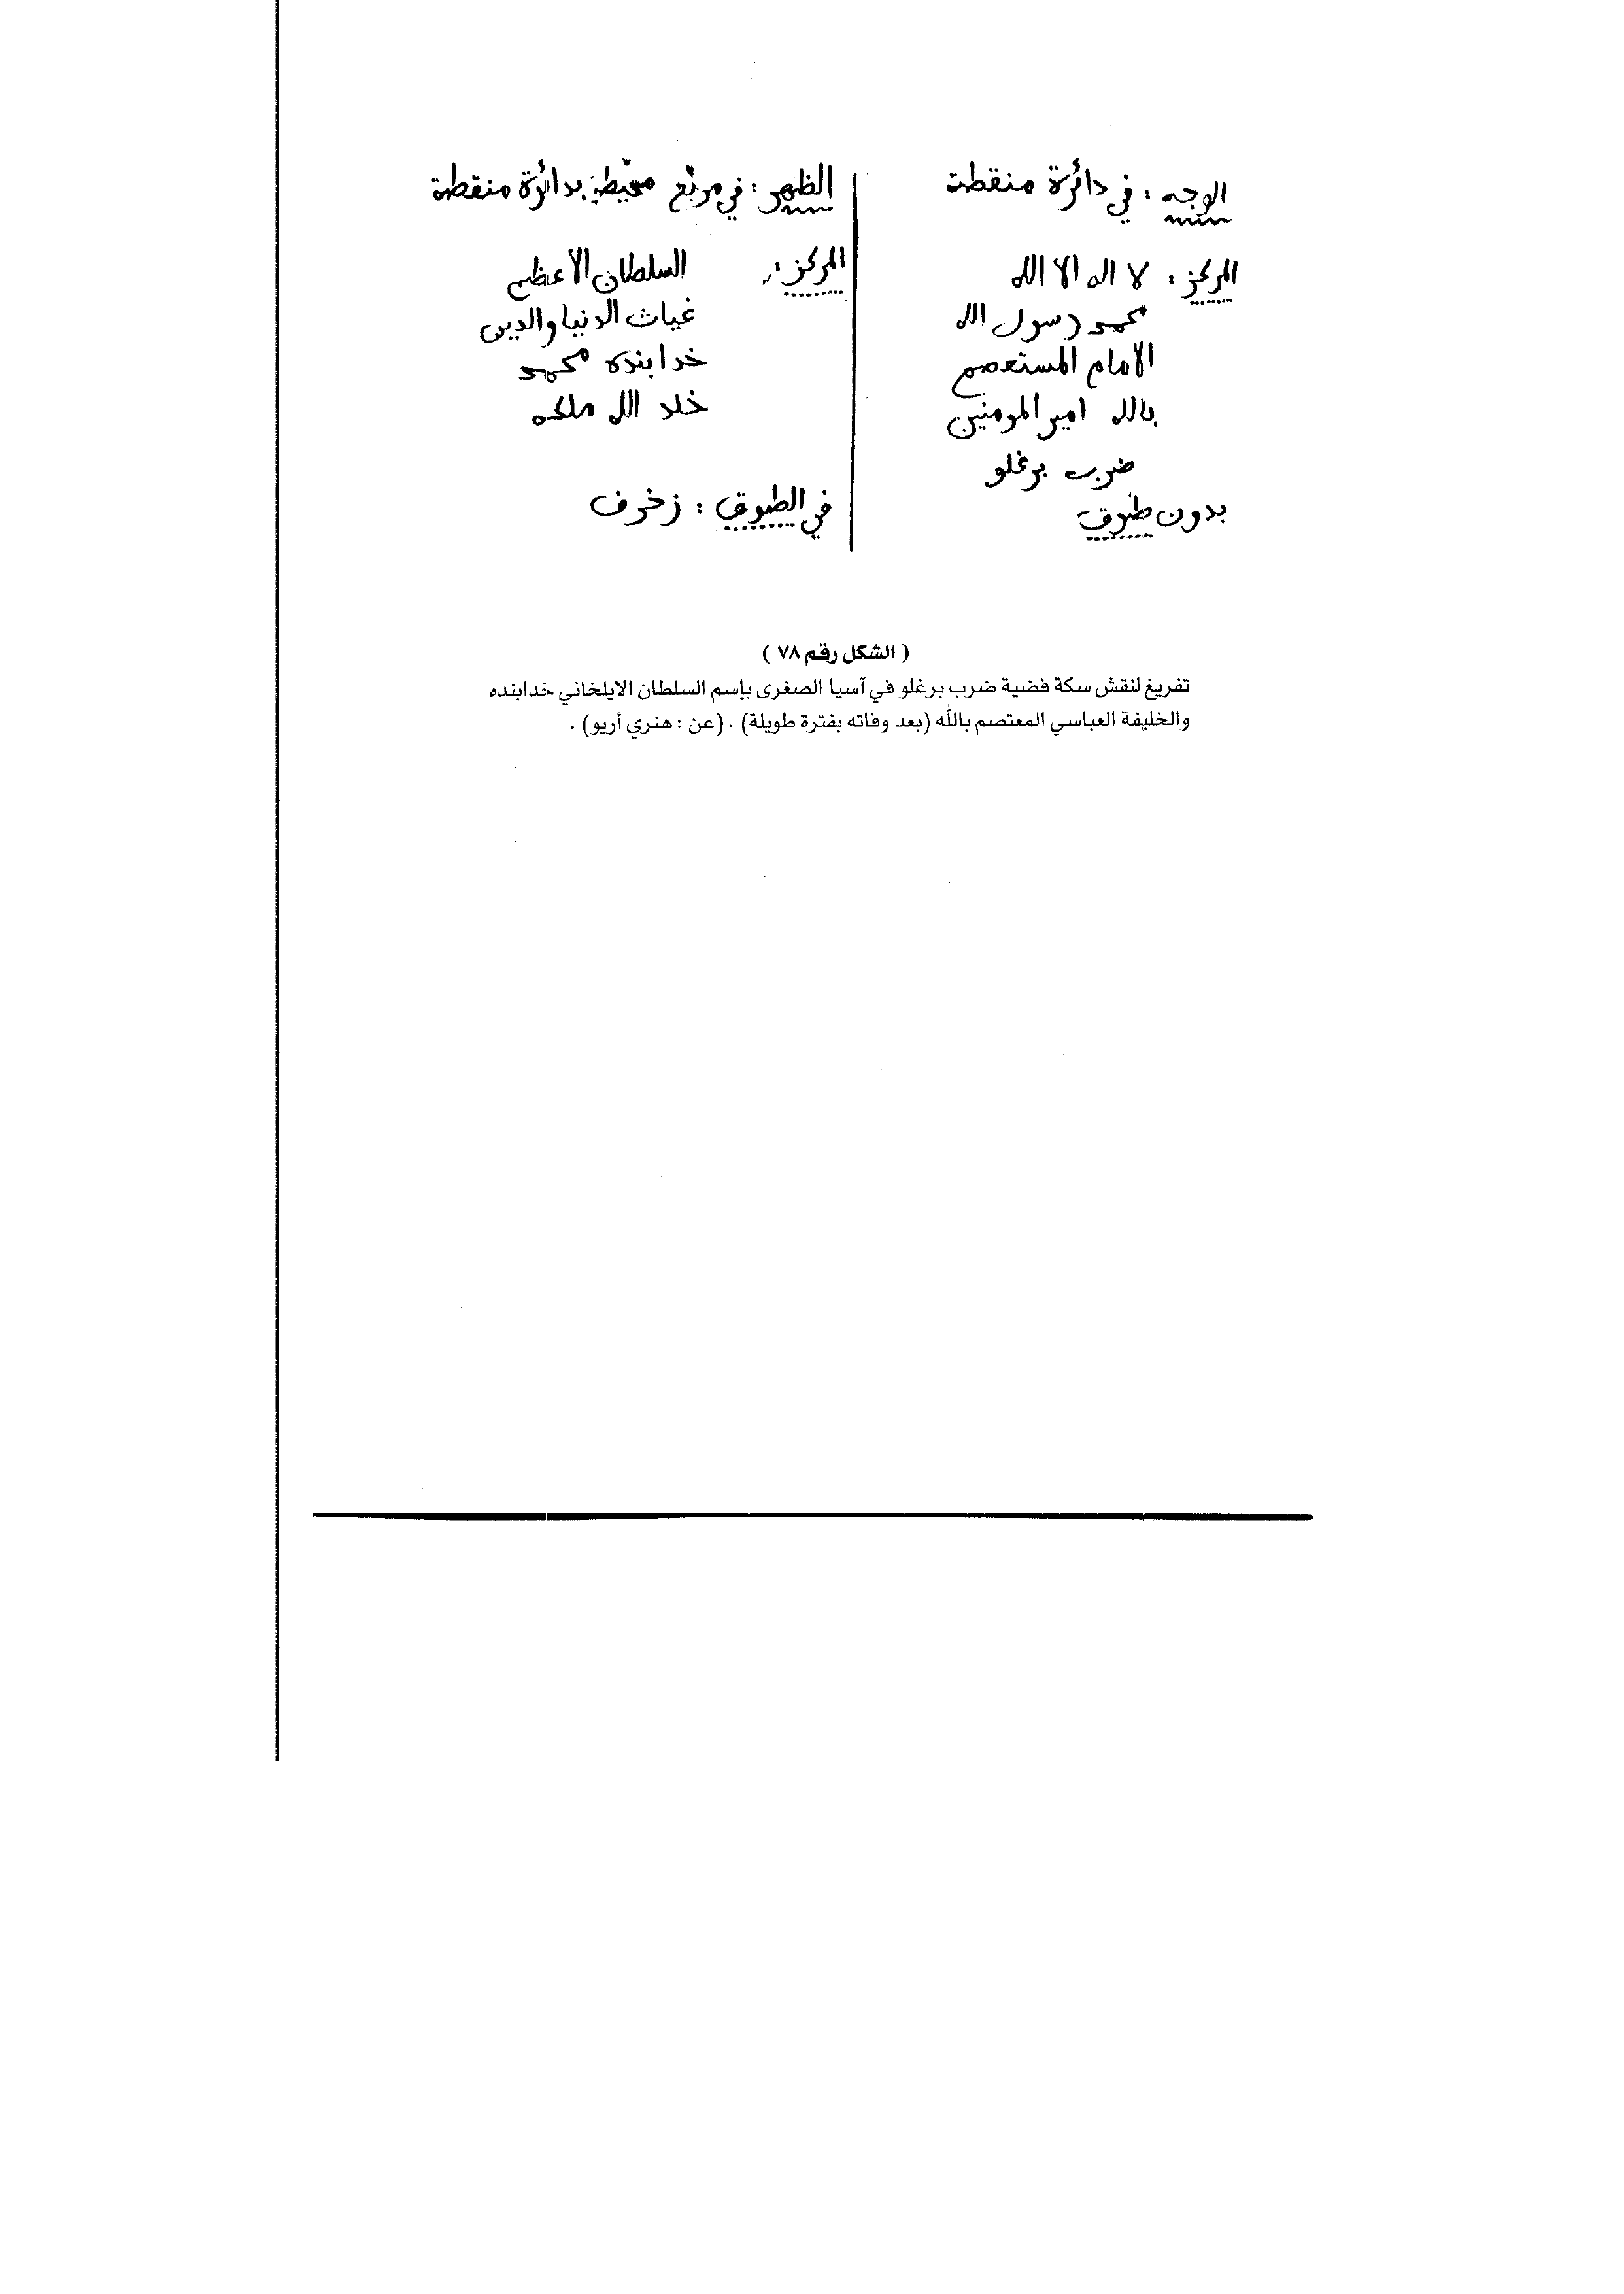 الوجه : في دائرة منقطة
المركز : لا اله الا الله
محمد رسول الله
الامام المستعصم
بالله امير المومنين
ضرب برغلو
بدون طوق
الظهر : في مربّع محيطة بدائرة منقطة
المركز :
السلطان الاعظم
غياث الدنيا والدين
خدابنده محمد
خلد الله ملكه
في الطوق : زخرف
( الشكل رقم ٧٨ )
تفريغ لنقش سكة فضية ضرب برغلو في آسيا الصغرى بإسم السلطان الايلخاني خدابنده
والخليفة العباسي المعتصم بالله (بعد وفاته بفترة طويلة) . (عن : هنري أريو) .